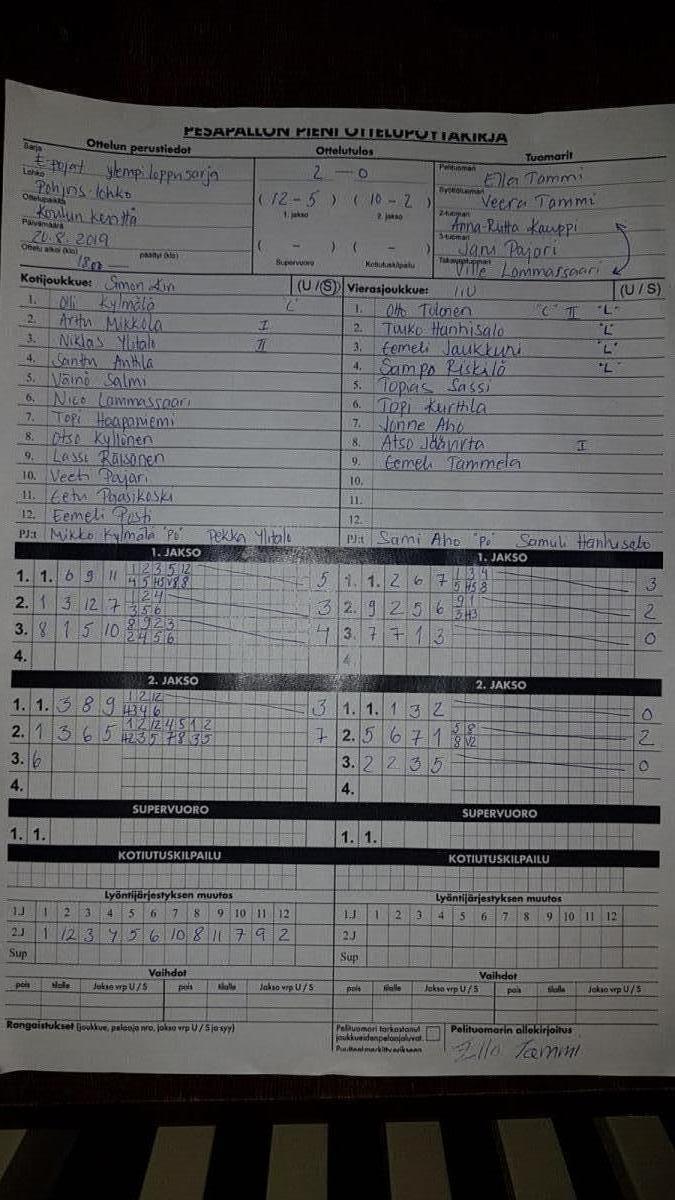 PESÄPALLON PIENI OTTELUPÖYTÄKIRJA
Ottelun perustiedot
Sarja
E-pojat ylempi loppusarja
Lohko
Pohjois-lohko
Ottelupaikka
Koulun kenttä
Päivämäärä
20.8.2019
Ottelu alkoi (klo) 18.00 päättyi (klo)
Ottelutulos
2 - 0
(12 - 5) (10 - 2)
1. jakso 2. jakso
( - ) ( - )
Supervuoro Kotiutuskilpailu
Tuomarit
Pelituomari Ella Tammi
Syöttötuomari Veera Tammi
2-tuomari Anna-Riitta Kauppi
3-tuomari Janu Pajari
Takarajatuomari Ville Lammassaari
Kotijoukkue: Simon Kiri (U/S)
1. Olli Kylmälä "C"
2. Arttu Mikkola I
3. Niklas Ylitalo II
4. Santtu Anttila
5. Väinö Salmi
6. Nico Lammassaari
7. Topi Haapaniemi
8. Otso Kyllönen
9. Lassi Räisänen
10. Veeti Pajari
11. Eetu Paasikoski
12. Eemeli Posti
PJ:t Mikko Kylmälä "Po" Pekka Ylitalo
Vierasjoukkue: (U/S)
1. Otto Tolonen "C" II "L"
2. Tuiko Hanhisalo "L"
3. Eemeli Jaukkuri "L"
4. Sampo Riskilä "L"
5. Topias Sassi
6. Topi Kurttila
7. Jonne Aho
8. Atso Jäävirta I
9. Eemeli Tammela
10.
11.
12.
PJ:t Sami Aho "Po" Samuli Hanhisalo
1. JAKSO
1. 1. 6 9 11 5
2. 1 3 12 7 3
3. 8 1 5 10 4
4.
1. JAKSO
1. 1. 2 6 7 3
2. 9 2 5 6 2
3. 7 7 1 3 0
4.
2. JAKSO
1. 1. 3 8 9 3
2. 1 3 6 5 7
3. 6
4.
2. JAKSO
1. 1. 1 3 2 0
2. 5 6 7 1 2
3. 2 2 3 5 0
4.
SUPERVUORO
1. 1.
SUPERVUORO
1. 1.
KOTIUTUSKILPAILU
KOTIUTUSKILPAILU
Lyöntijärjestyksen muutos
1.J 1 2 3 4 5 6 7 8 9 10 11 12
2.J 1 12 3 4 5 6 10 8 11 7 9 2
Sup
Lyöntijärjestyksen muutos
1.J 1 2 3 4 5 6 7 8 9 10 11 12
2.J
Sup
Vaihdot
pois tilalle Jakso vrp U / S pois tilalle Jakso vrp U / S
Vaihdot
pois tilalle Jakso vrp U / S pois tilalle Jakso vrp U / S
Rangaistukset (joukkue, pelaaja nro, jakso vrp U / S ja syy)
Pelituomari tarkastanut
joukkueiden pelaajaluvat.
Puutteet merkitty erikseen
Pelituomarin allekirjoitus
Ella Tammi